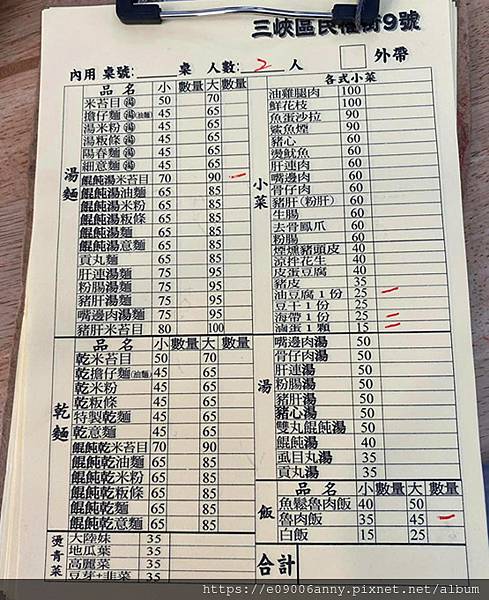 三峽區民權街9號
內用 桌號:____桌 人數:2人 □外帶
湯麵
品名 小 數量 大 數量
米苔目(湯) 50 70
擔仔麵(湯)(油麵) 45 65
湯米粉(湯) 45 65
湯粄條(湯) 45 65
陽春麵(湯) 45 65
細意麵(湯) 45 65
餛飩湯米苔目 70 90
餛飩湯油麵 65 85
餛飩湯米粉 65 85
餛飩湯粄條 65 85
餛飩湯麵 65 85
餛飩湯意麵 65 85
貢丸麵 65 85
肝連湯麵 75 95
粉腸湯麵 75 95
豬肝湯麵 75 95
嘴邊肉湯麵 75 95
豬肝米苔目 80 100
乾麵
品名 小 數量 大 數量
乾米苔目 50 70
乾擔仔麵(油麵) 45 65
乾米粉 45 65
乾粄條 45 65
特製乾麵 45 65
乾意麵 45 65
餛飩乾米苔目 70 90
餛飩乾油麵 65 85
餛飩乾米粉 65 85
餛飩乾粄條 65 85
餛飩乾麵 65 85
餛飩乾意麵 65 85
燙青菜
大陸妹 35
地瓜葉 35
高麗菜 35
豆芽+韭菜 35
小菜
各式小菜
油雞腿肉 100
鮮花枝 100
魚蛋沙拉 90
鯊魚煙 90
豬心 60
燙魷魚 60
肝連肉 60
嘴邊肉 60
骨仔肉 60
豬肝(粉肝) 60
生腸 60
去骨鳳爪 60
粉腸 60
煙燻豬頭皮 40
涼拌花生 40
皮蛋豆腐 40
豬皮 35
油豆腐1份 25
豆干1份 25
海帶1份 25
滷蛋1顆 15
湯
嘴邊肉湯 50
骨仔肉湯 50
肝連湯 50
粉腸湯 50
豬肝湯 50
豬心湯 50
雙丸餛飩湯 50
餛飩湯 40
虱目丸湯 35
貢丸湯 35
飯
品名 小 數量 大 數量
魚鬆魯肉飯 40 50
魯肉飯 35 45
白飯 15 25
合計
https://e09006anny.pixnet.net/album